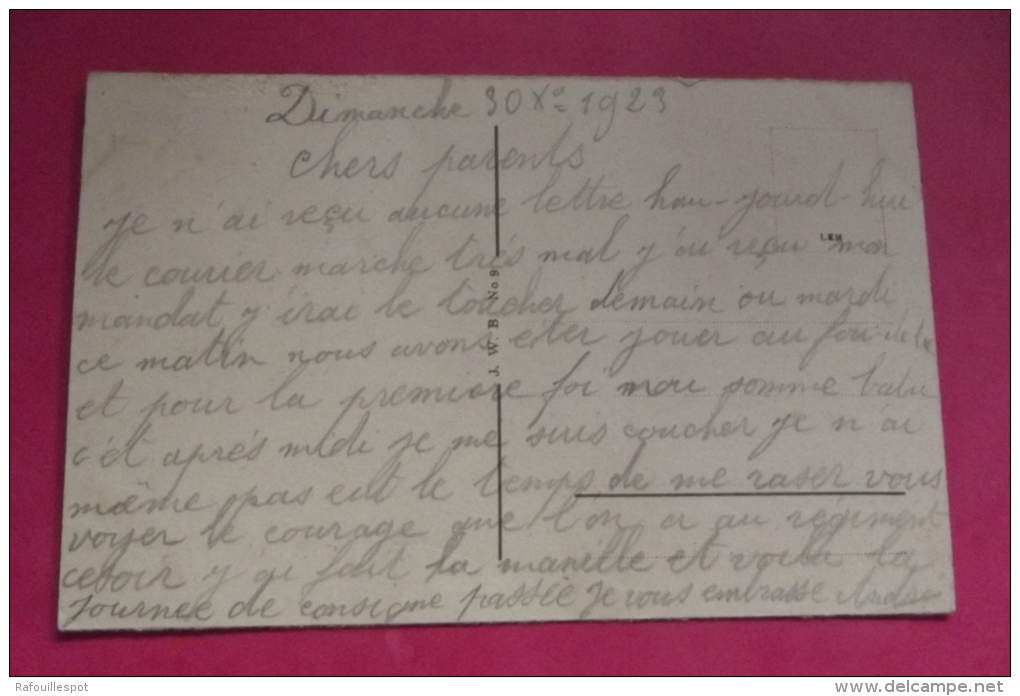 Dimanche 30 Xe 1923
Chers parents
je n'ai reçu aucune lettre hau-jourd-hui
LEM
le courier marche très mal y'ai reçu mon
mandat y'irai le toucher demain ou mardi
ce matin nous avons éter jouer au
et pour la première foi nou somme batu
c'ét après midi je me suis coucher je n'ai
même pas eut le temps de me raser vous
voyer le courage que l'on a au régiment
cesoir y'ai fait la manille et voila la
journée de consigne passée je vous embrasse André
J. W. B. No. 9
Rafouillespot
www.delcampe.net